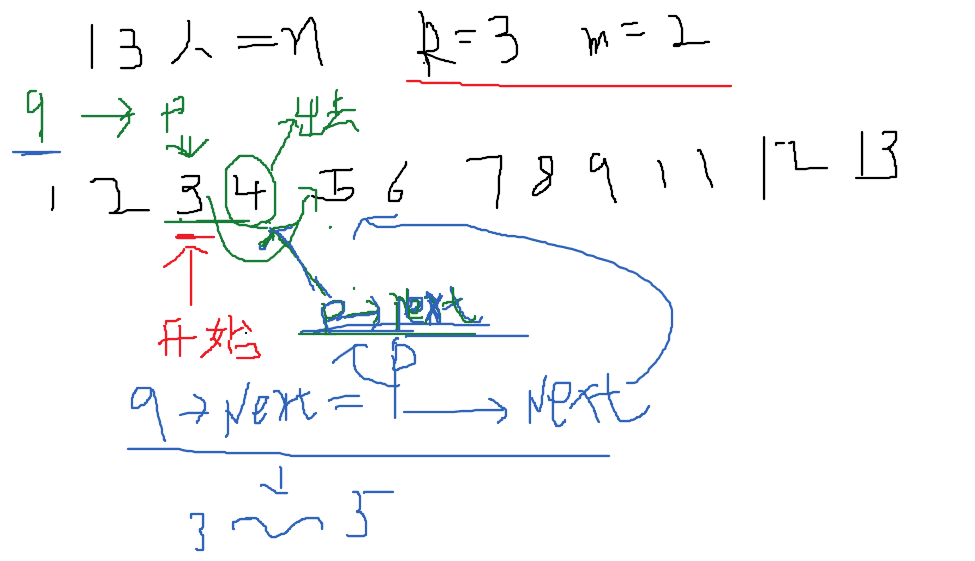 13人=n k=3 m=2
9 → p 出去
1 2 3 4 5 6 7 8 9 11 12 13
p→next
开始
q→Next=p→Next
3 5